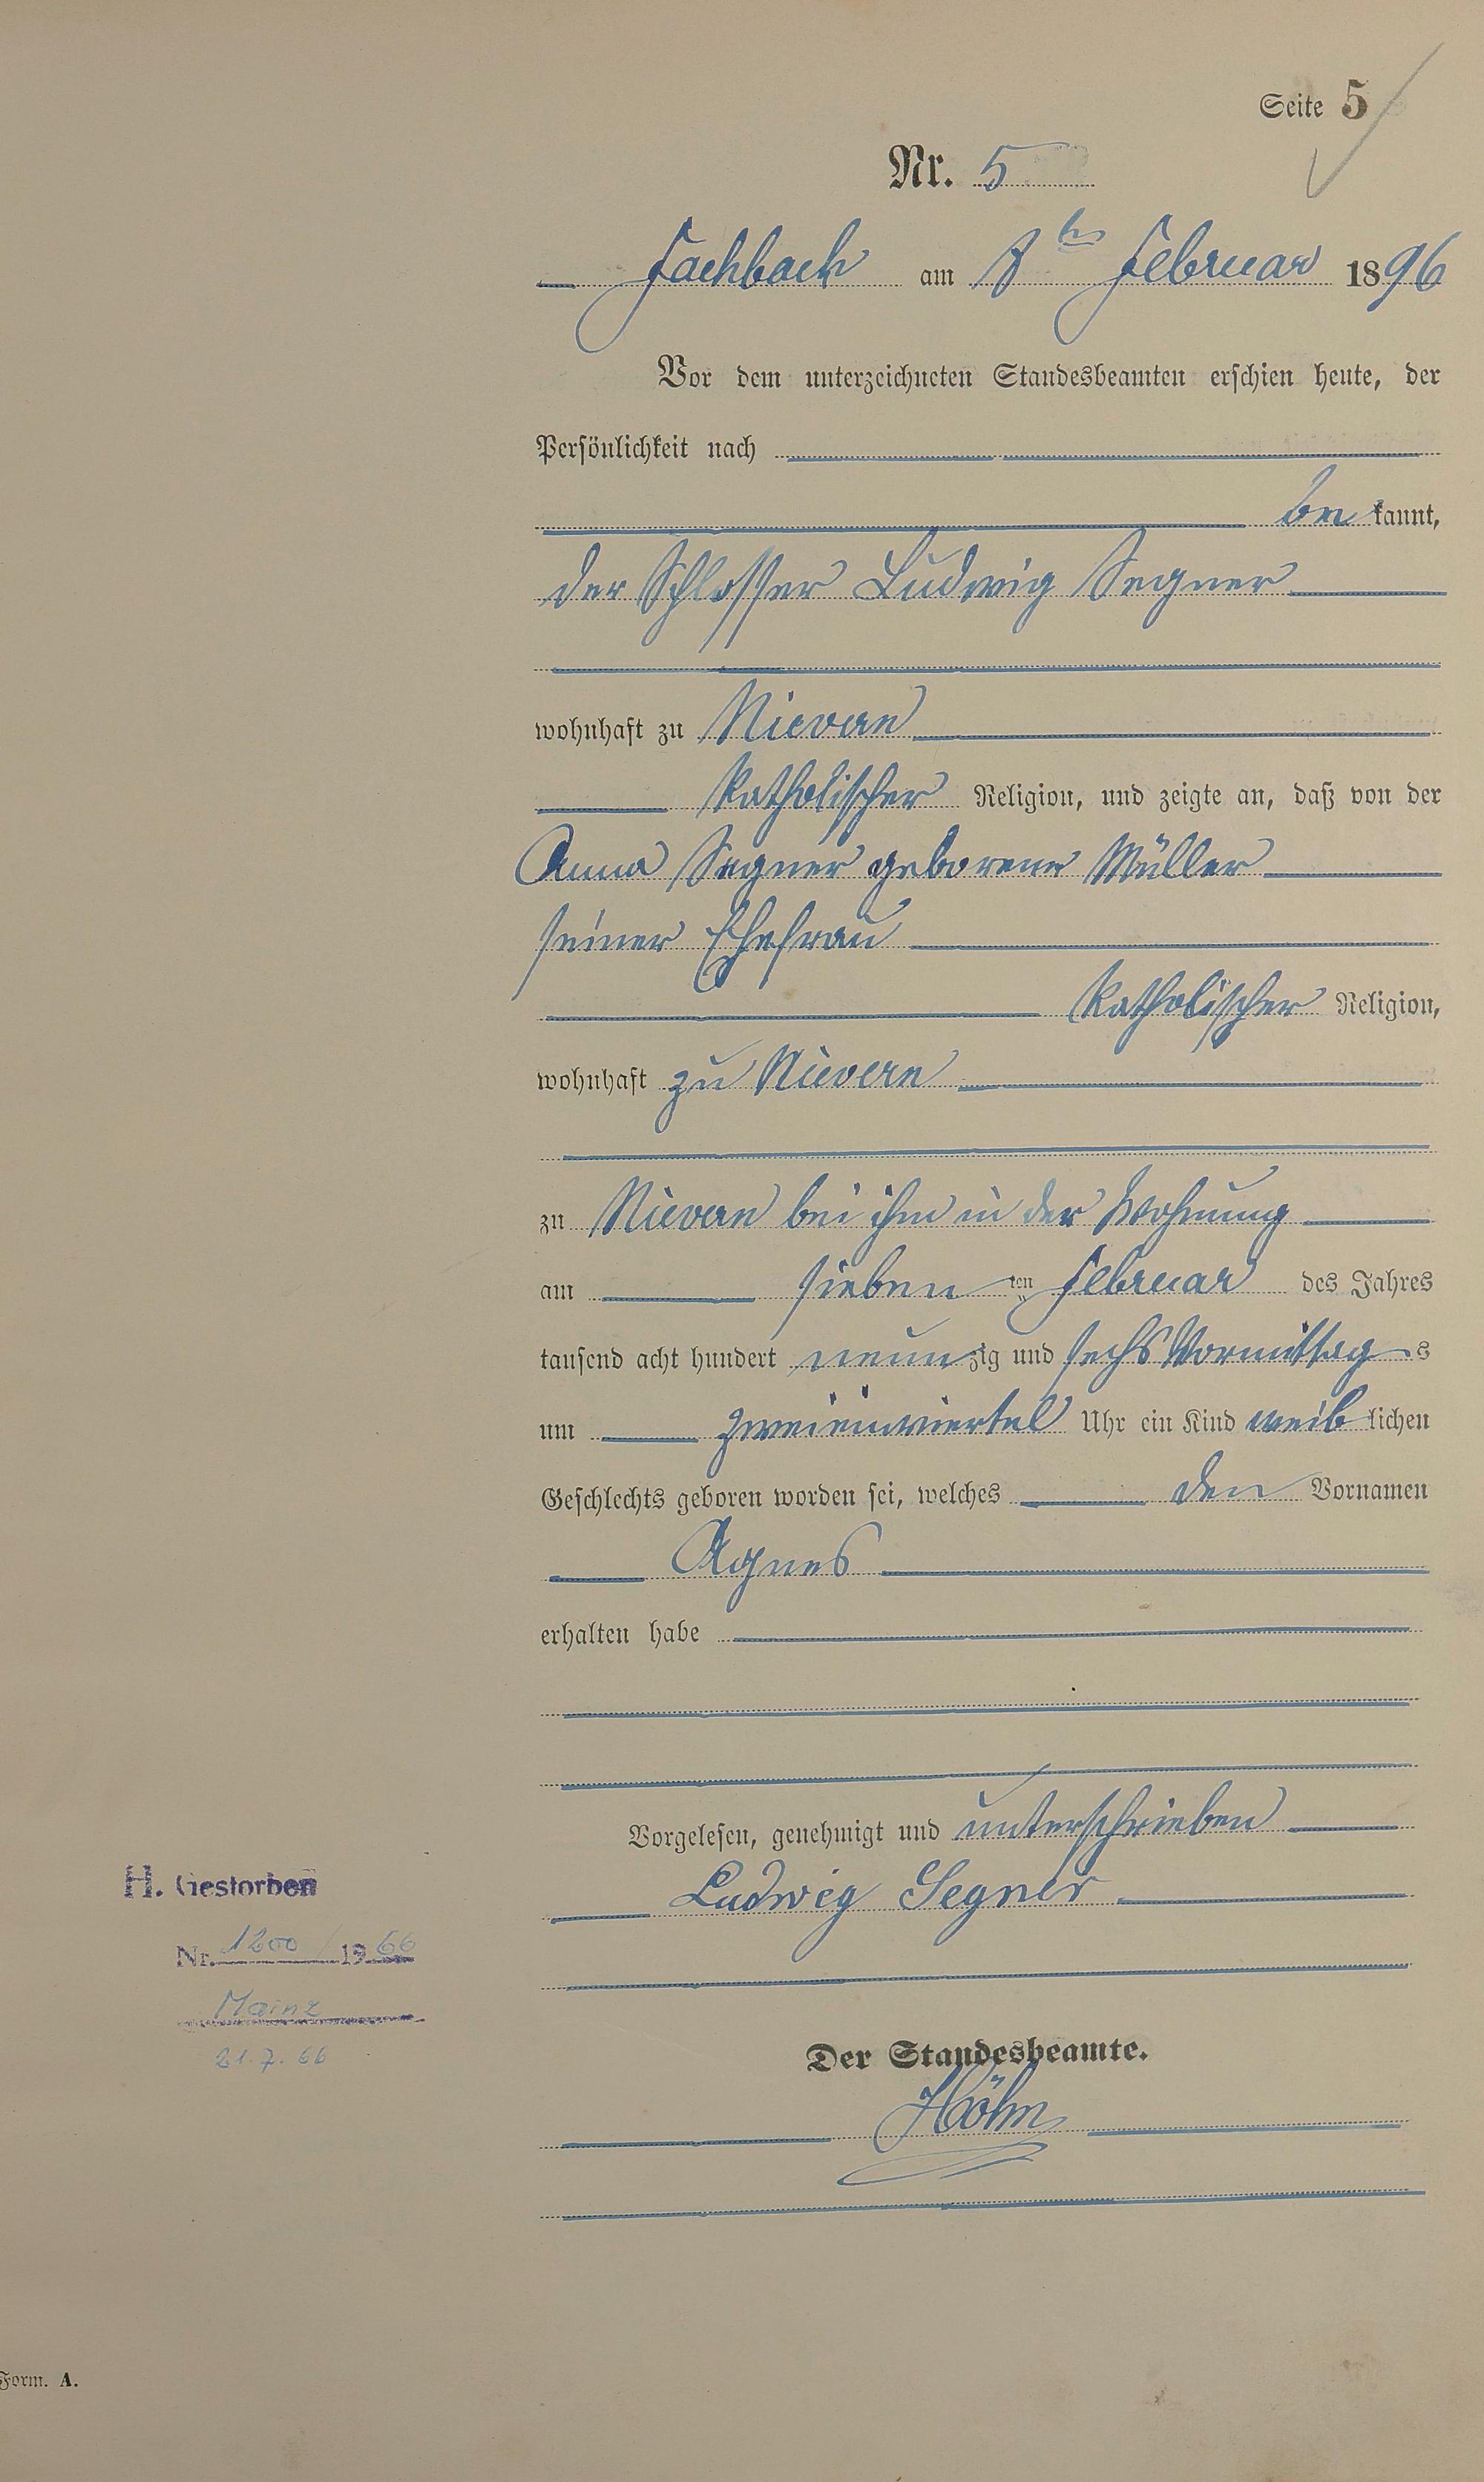 Seite 5
Nr. 5
Fachbach am 8ten Februar 1896
Vor dem unterzeichneten Standesbeamten erschien heute, der
Persönlichkeit nach
be kannt,
der Schlosser Ludwig Segner
wohnhaft zu Nievern
katholischer Religion, und zeigte an, daß von der
Anna Segner geborene Müller
seiner Ehefrau
katholischer Religion,
wohnhaft zu Nievern
zu Nievern bei ihm in der Wohnung
am sieben ten Februar des Jahres
tausend acht hundert neunzig und sechs Vormittags
um zweieinviertel Uhr ein Kind weiblichen
Geschlechts geboren worden sei, welches den Vornamen
Agnes
erhalten habe
Vorgelesen, genehmigt und unterschrieben
Ludwig Segner
H. Gestorben
Nr. 1200/1966
Mainz
21.7.66
Der Standesbeamte.
Höhn
Form. A.